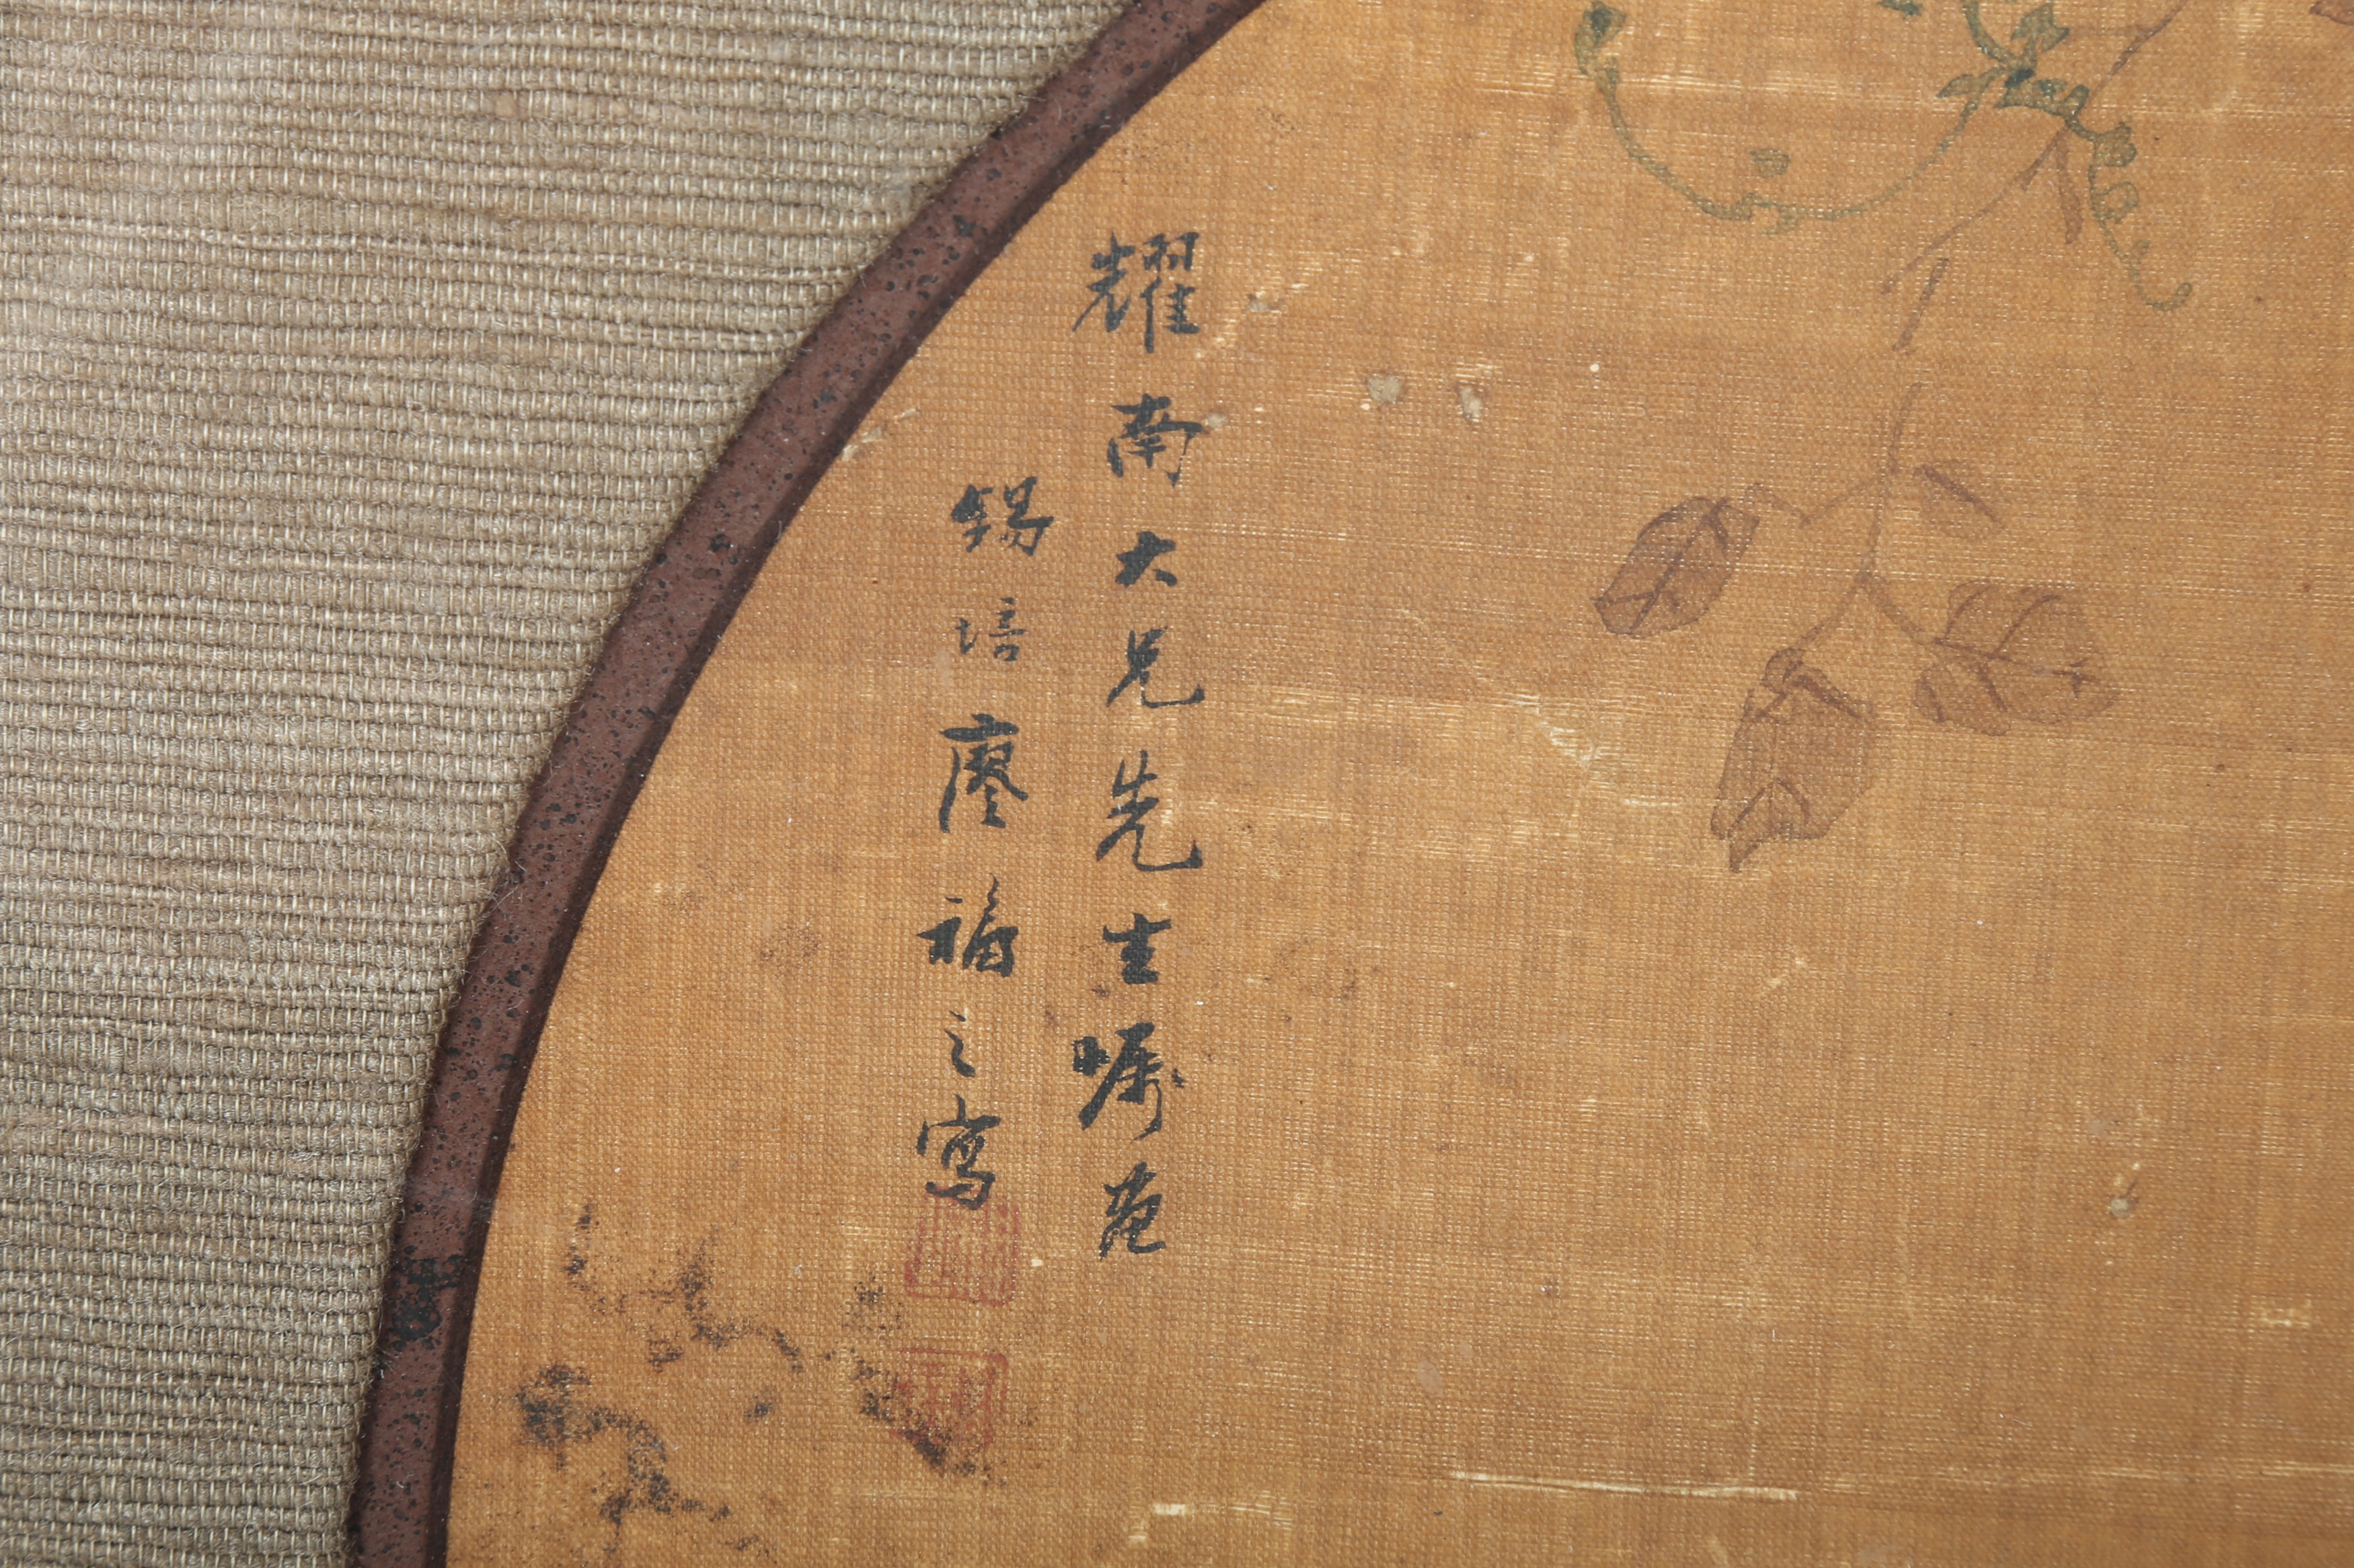 耀南大兄先生嘱画
錫培廖福之寫